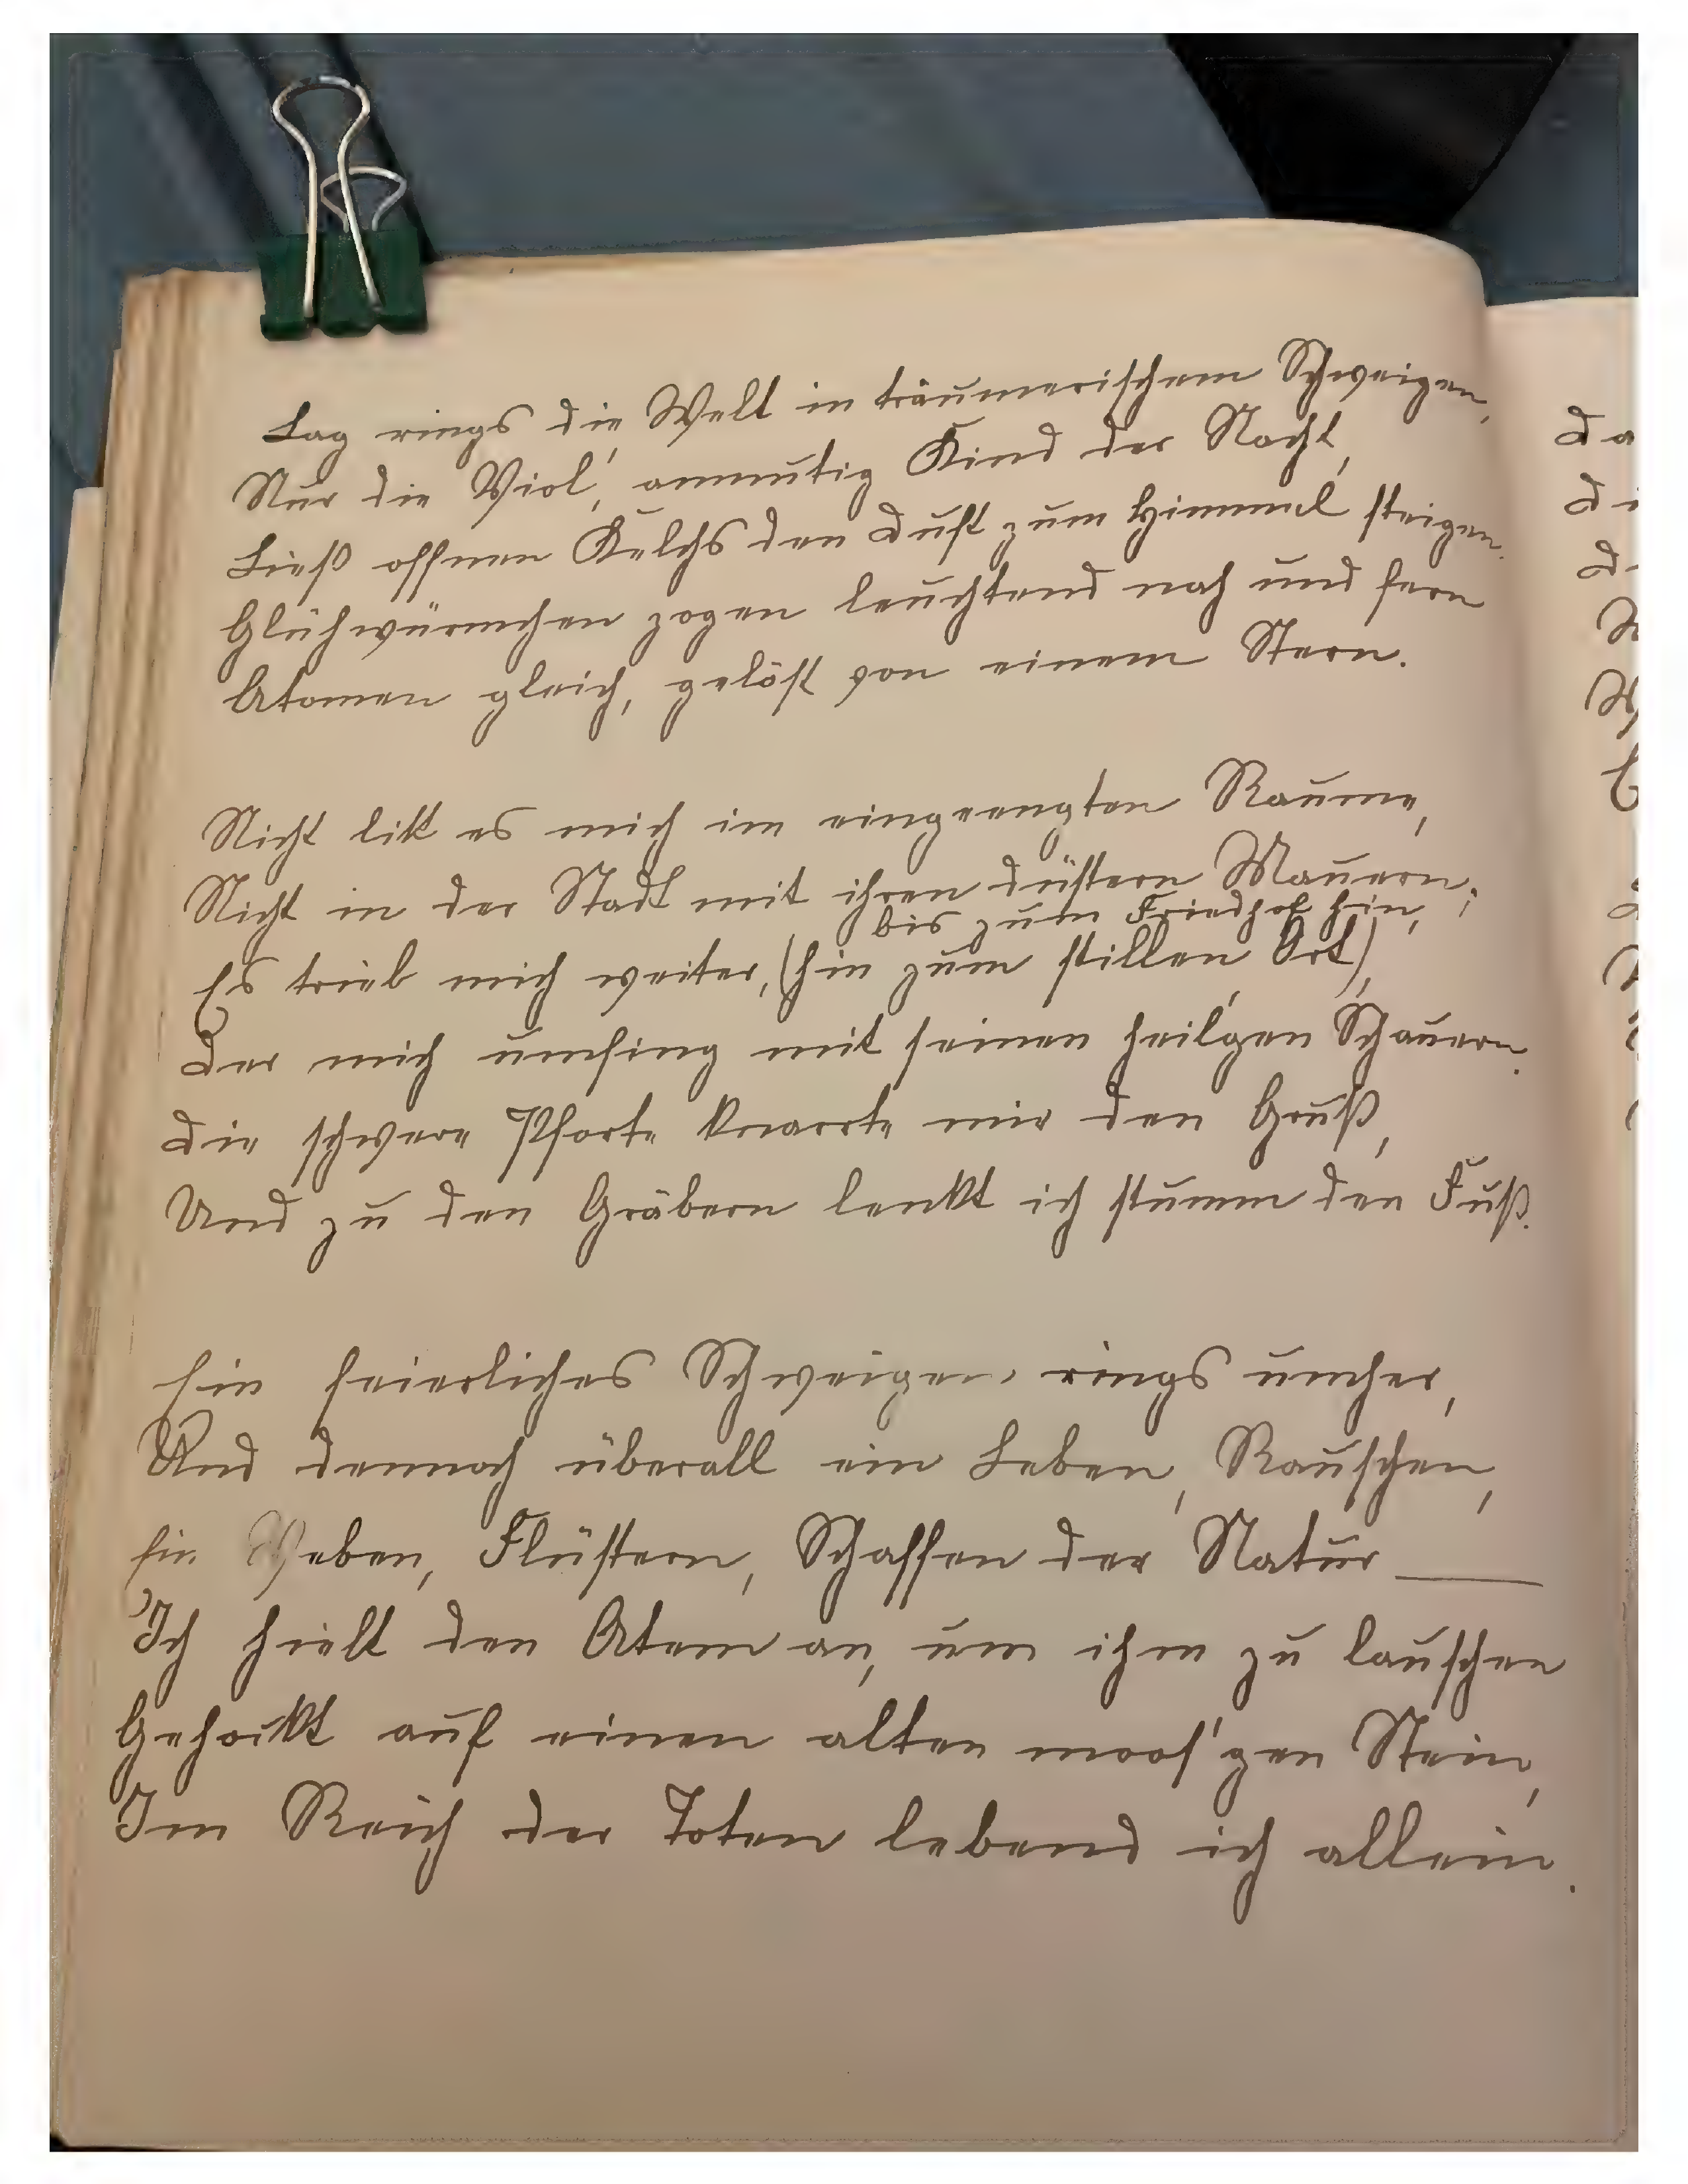 Lag rings die Welt in träumerischem Schweigen,
Nur die Viol', anmutig Kind der Nacht,
Ließ offnen Kelchs den Duft zum Himmel steigen.
Glühwürmchen zogen leuchtend nah und fern
Atomen gleich, gelöst von einem Stern.
Nicht litt es mich im eingeengten Raume,
Nicht in der Stadt mit ihren düstern Mauern;
bis zum Friedhof hin,
Es trieb mich weiter, (hin zum stillen Ort),
Der mich umfing mit seinen heil'gen Schauern.
Die schwere Pforte knarrte mir den Gruß,
Und zu den Gräbern lenkt ich stumm den Fuß.
Ein feierliches Schweigen rings umher,
Und dennoch überall ein Leben, Rauschen,
Ein Weben, Flüstern, Schaffen der Natur —
Ich hielt den Atem an, um ihm zu lauschen
Gehockt auf einen alten moos'gen Stein,
Im Reich der Toten lebend ich allein.